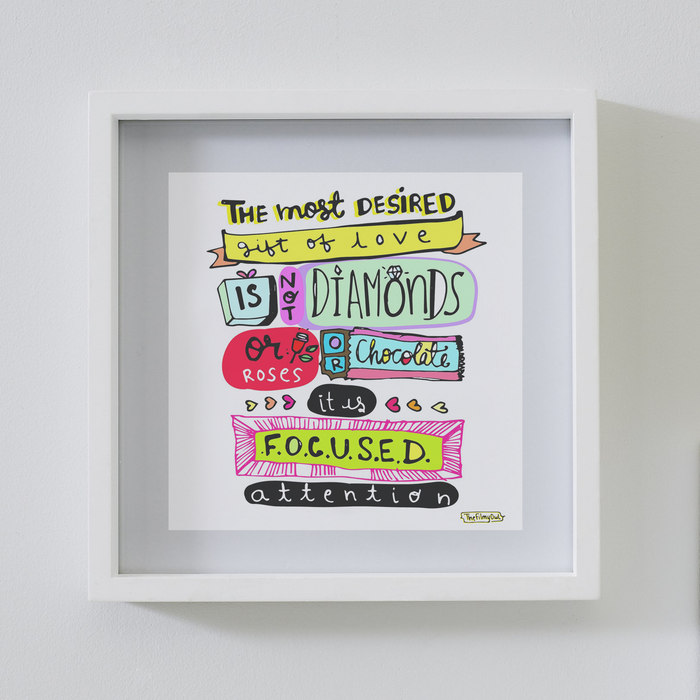 THE most DESIRED
gift of love
IS NOT DIAMONDS
or ROSES OR Chocolate
it is
F.O.C.U.S.E.D.
attention
TheFilmyOwl